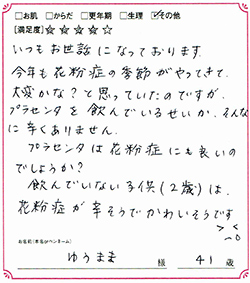 □お肌 □からだ □更年期 □生理 ☑その他
[満足度]☆☆☆☆☆
いつもお世話になっております。
今年も花粉症の季節がやってきて、
大変かな?と思っていたのですが、
プラセンタを飲んでいるせいか、そんな
に辛くありません。
プラセンタは花粉症にも良いの
でしょうか?
飲んでいない子供(2歳)は、
花粉症が辛そうでかわいそうです
お名前(本名orペンネーム)
ゆうまま 様 41 歳